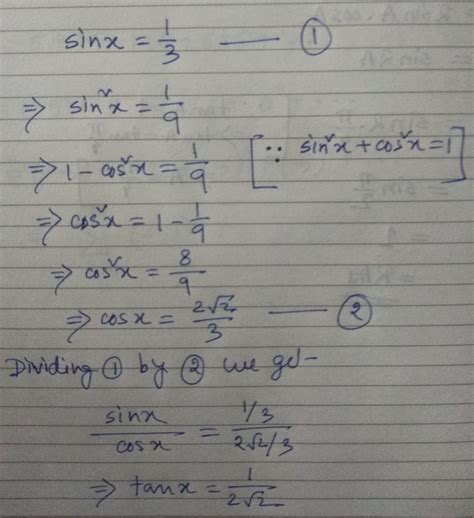 sinx = 1/3 —— ①
⇒ sin²x = 1/9
⇒ 1 - cos²x = 1/9 [∵ sin²x + cos²x = 1]
⇒ cos²x = 1 - 1/9
⇒ cos²x = 8/9
⇒ cosx = 2√2/3 —— ②
Dividing ① by ② we get-
sinx/cosx = (1/3)/(2√2/3)
⇒ tanx = 1/2√2